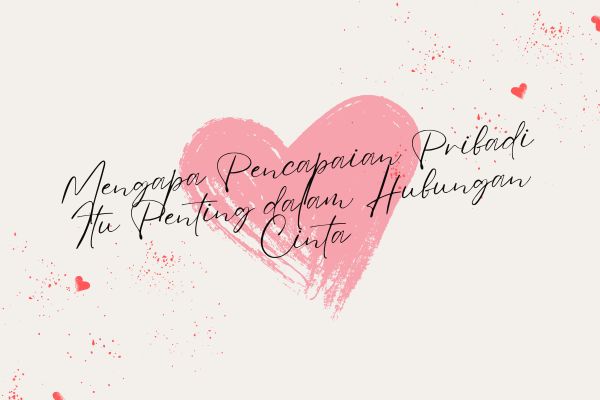 Mengapa Pencapaian Pribadi
Itu Penting dalam Hubungan
Cinta